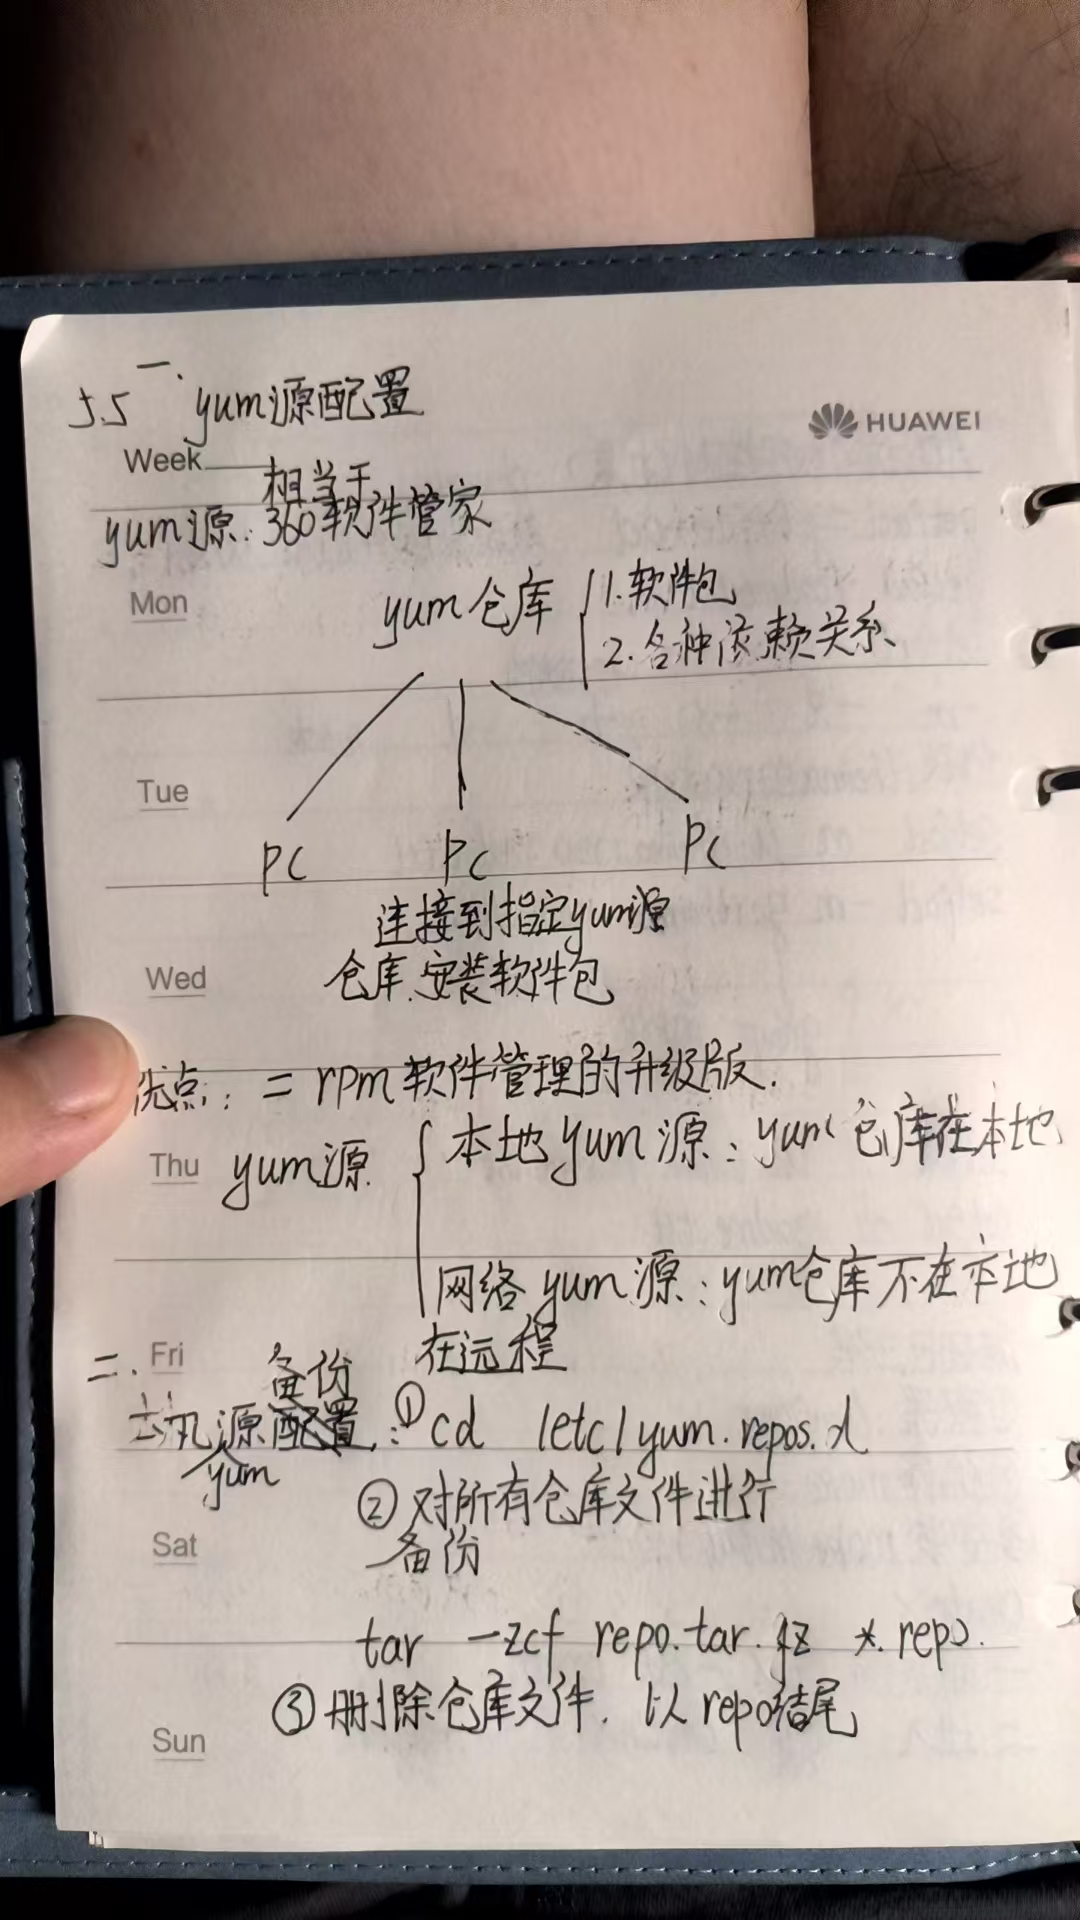 5.5 一. yum源配置
HUAWEI
Week
相当于
yum源: 360软件管家
Mon
yum仓库 1.软件包
2.各种依赖关系
Tue
PC PC PC
连接到指定yum源
Wed
仓库.安装软件包
优点: = rpm软件管理的升级版.
Thu
yum源 本地yum源: yum仓库在本地
网络yum源: yum仓库不在本地
在远程
二. Fri
备份
源配置: ①cd /etc/yum.repos.d
yum
②对所有仓库文件进行
Sat
备份
tar -zcf repo.tar.gz *.repo.
③删除仓库文件. 以repo结尾
Sun